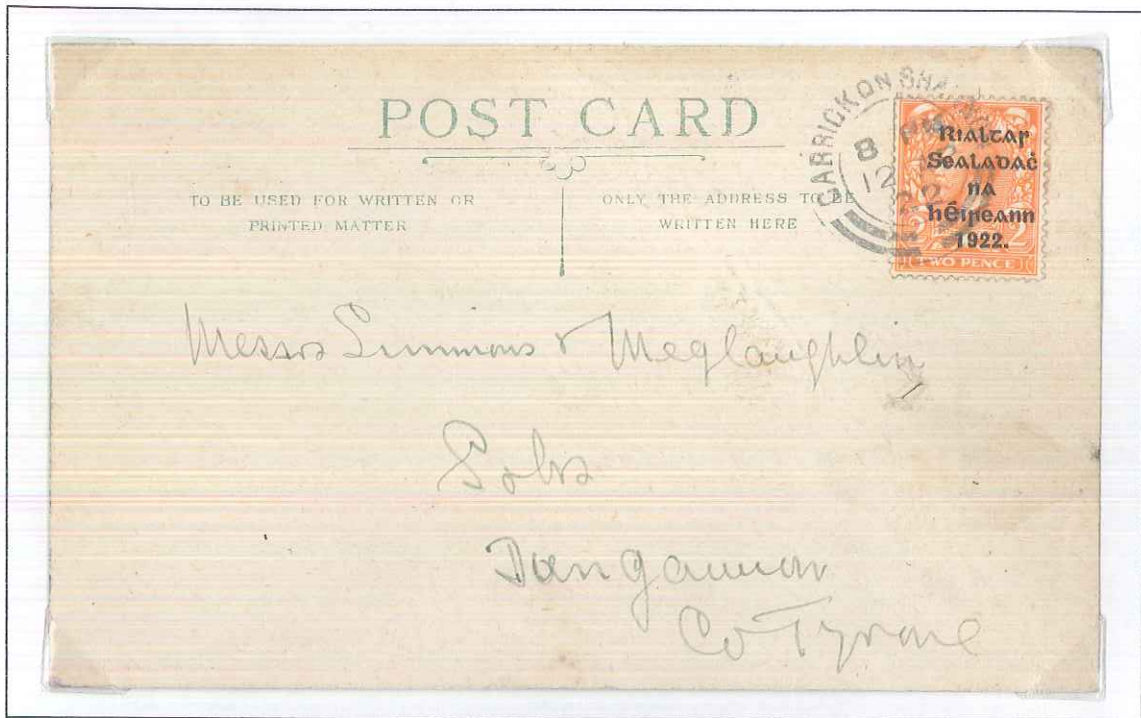 POST CARD
TO BE USED FOR WRITTEN OR
PRINTED MATTER
ONLY THE ADDRESS TO BE
WRITTEN HERE
CARRICK ON
8 PM
12
22
Rialtar
Sealadaċ
na
hÉireann
1922.
2 2
TWO PENCE
Messrs Simmons & Meglaughlin
Solrs
Dungannon
Co Tyrone